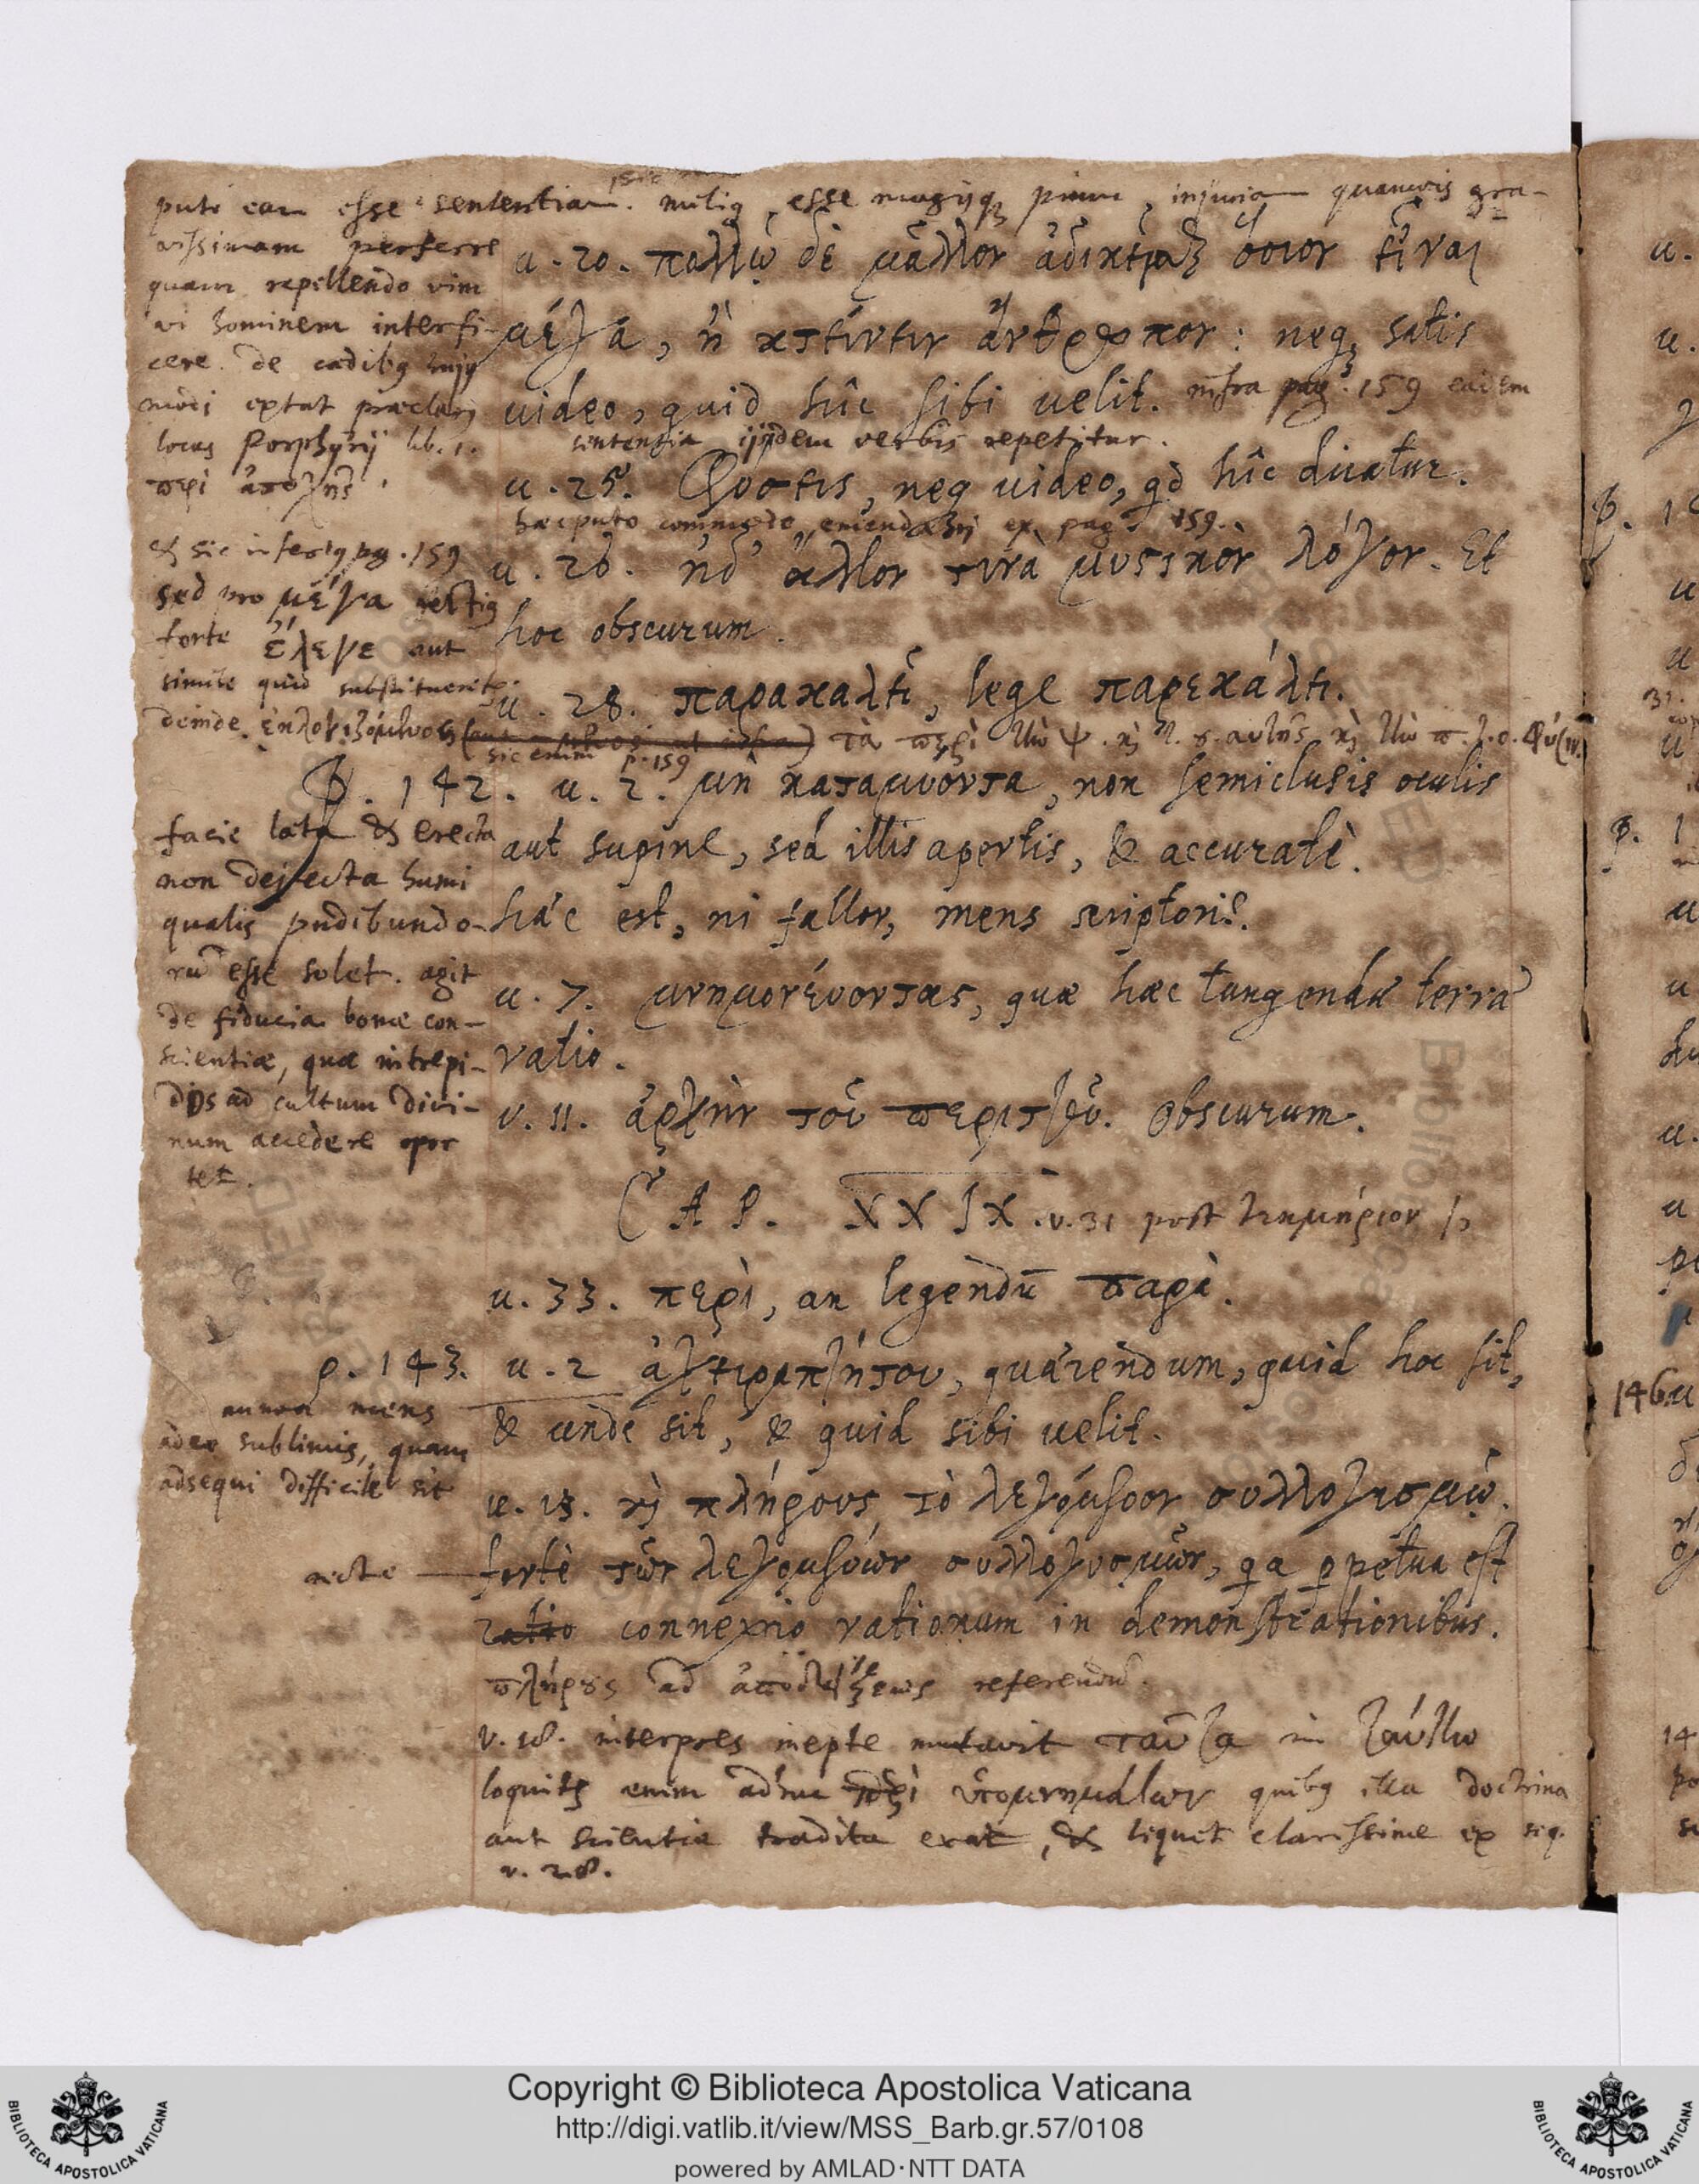 puto eam esse sententiam. melig, esse magisq, pium, injuriam quamvis gra-
vissimam perferre
quam repellendo vim
vi hominem interfi-
cere. de cadibg hujg
modi extat præclarg
locus Porphyrij lib. 1.
περὶ ἀποχῆς
u. 20. πολλῷ δὲ μᾶλλον ἀδικεῖσθαι ὅσιον εἶναι
μέγα, ἢ κτείνειν ἄνθρωπον: neq, satis
video, quid hîc sibi velit. infra pag. 159 eadem
sententia ijsdem verbis repetitur.
u. 25. neq video, qd hîc dicatur.
hæc puto commode emendarij ex pag. 159.
u. 26. ἠδ' ἄλλον τινὰ μυστικὸν λόγον. Et
hoc obscurum.
& sic inferig pg. 159
sed pro μέγα rectig
forte ἔλεγε aut
simile quid substituerit
deinde
sic enim p. 159
τὰ περὶ
u. 28. παρακαλεῖ, lege παρεκάλει.
P. 142. u. 2. μὴ καταμύοντα, non semiclusis oculis
aut supine, sed illis apertis, & accuratè.
hæc est, ni fallor, mens scriptoris.
facie lata & erecta
non dejecta humi
qualis pudibundo-
rũ esse solet. agit
de fiducia bonæ con-
scientiæ, quæ intrepi-
dos ad cultum divi-
num accedere opor
tet.
u. 7. μνημονεύοντας, quæ hæc tangendæ terræ
ratio.
v. 11. ἀρχὴν τοῦ Obscurum.
CAP. XXIX. v. 31 post τεκμήριον
u. 33. περὶ, an legendũ παρὰ.
p. 143. u. 2 quærendum, quid hoc sit,
& unde sit, & quid sibi velit.
mens
adeo sublimis, quam
adsequi difficile sit
u. 13. κὶ πλήρους τὸ λεγόμενον συλλογισμῷ.
recte
fortè τῶν λεγομένων συλλογισμῶν, qa ppetua est
ratio connexio rationum in demonstrationibus.
πλήρους ad ἀποδείξεως referendũ.
v. 18. interpres inepte mutavit ταῦτα in ταύτην
loquitr enim adhuc περὶ ὑπομνημάτων quibg illa doctrina
aut scientia tradita erat, & liquet clarissime ex seq.
v. 28.
u.
u.
p.
146.
Copyright © Biblioteca Apostolica Vaticana
http://digi.vatlib.it/view/MSS_Barb.gr.57/0108
powered by AMLAD·NTT DATA
BIBLIOTECA APOSTOLICA VATICANA
BIBLIOTECA APOSTOLICA VATICANA